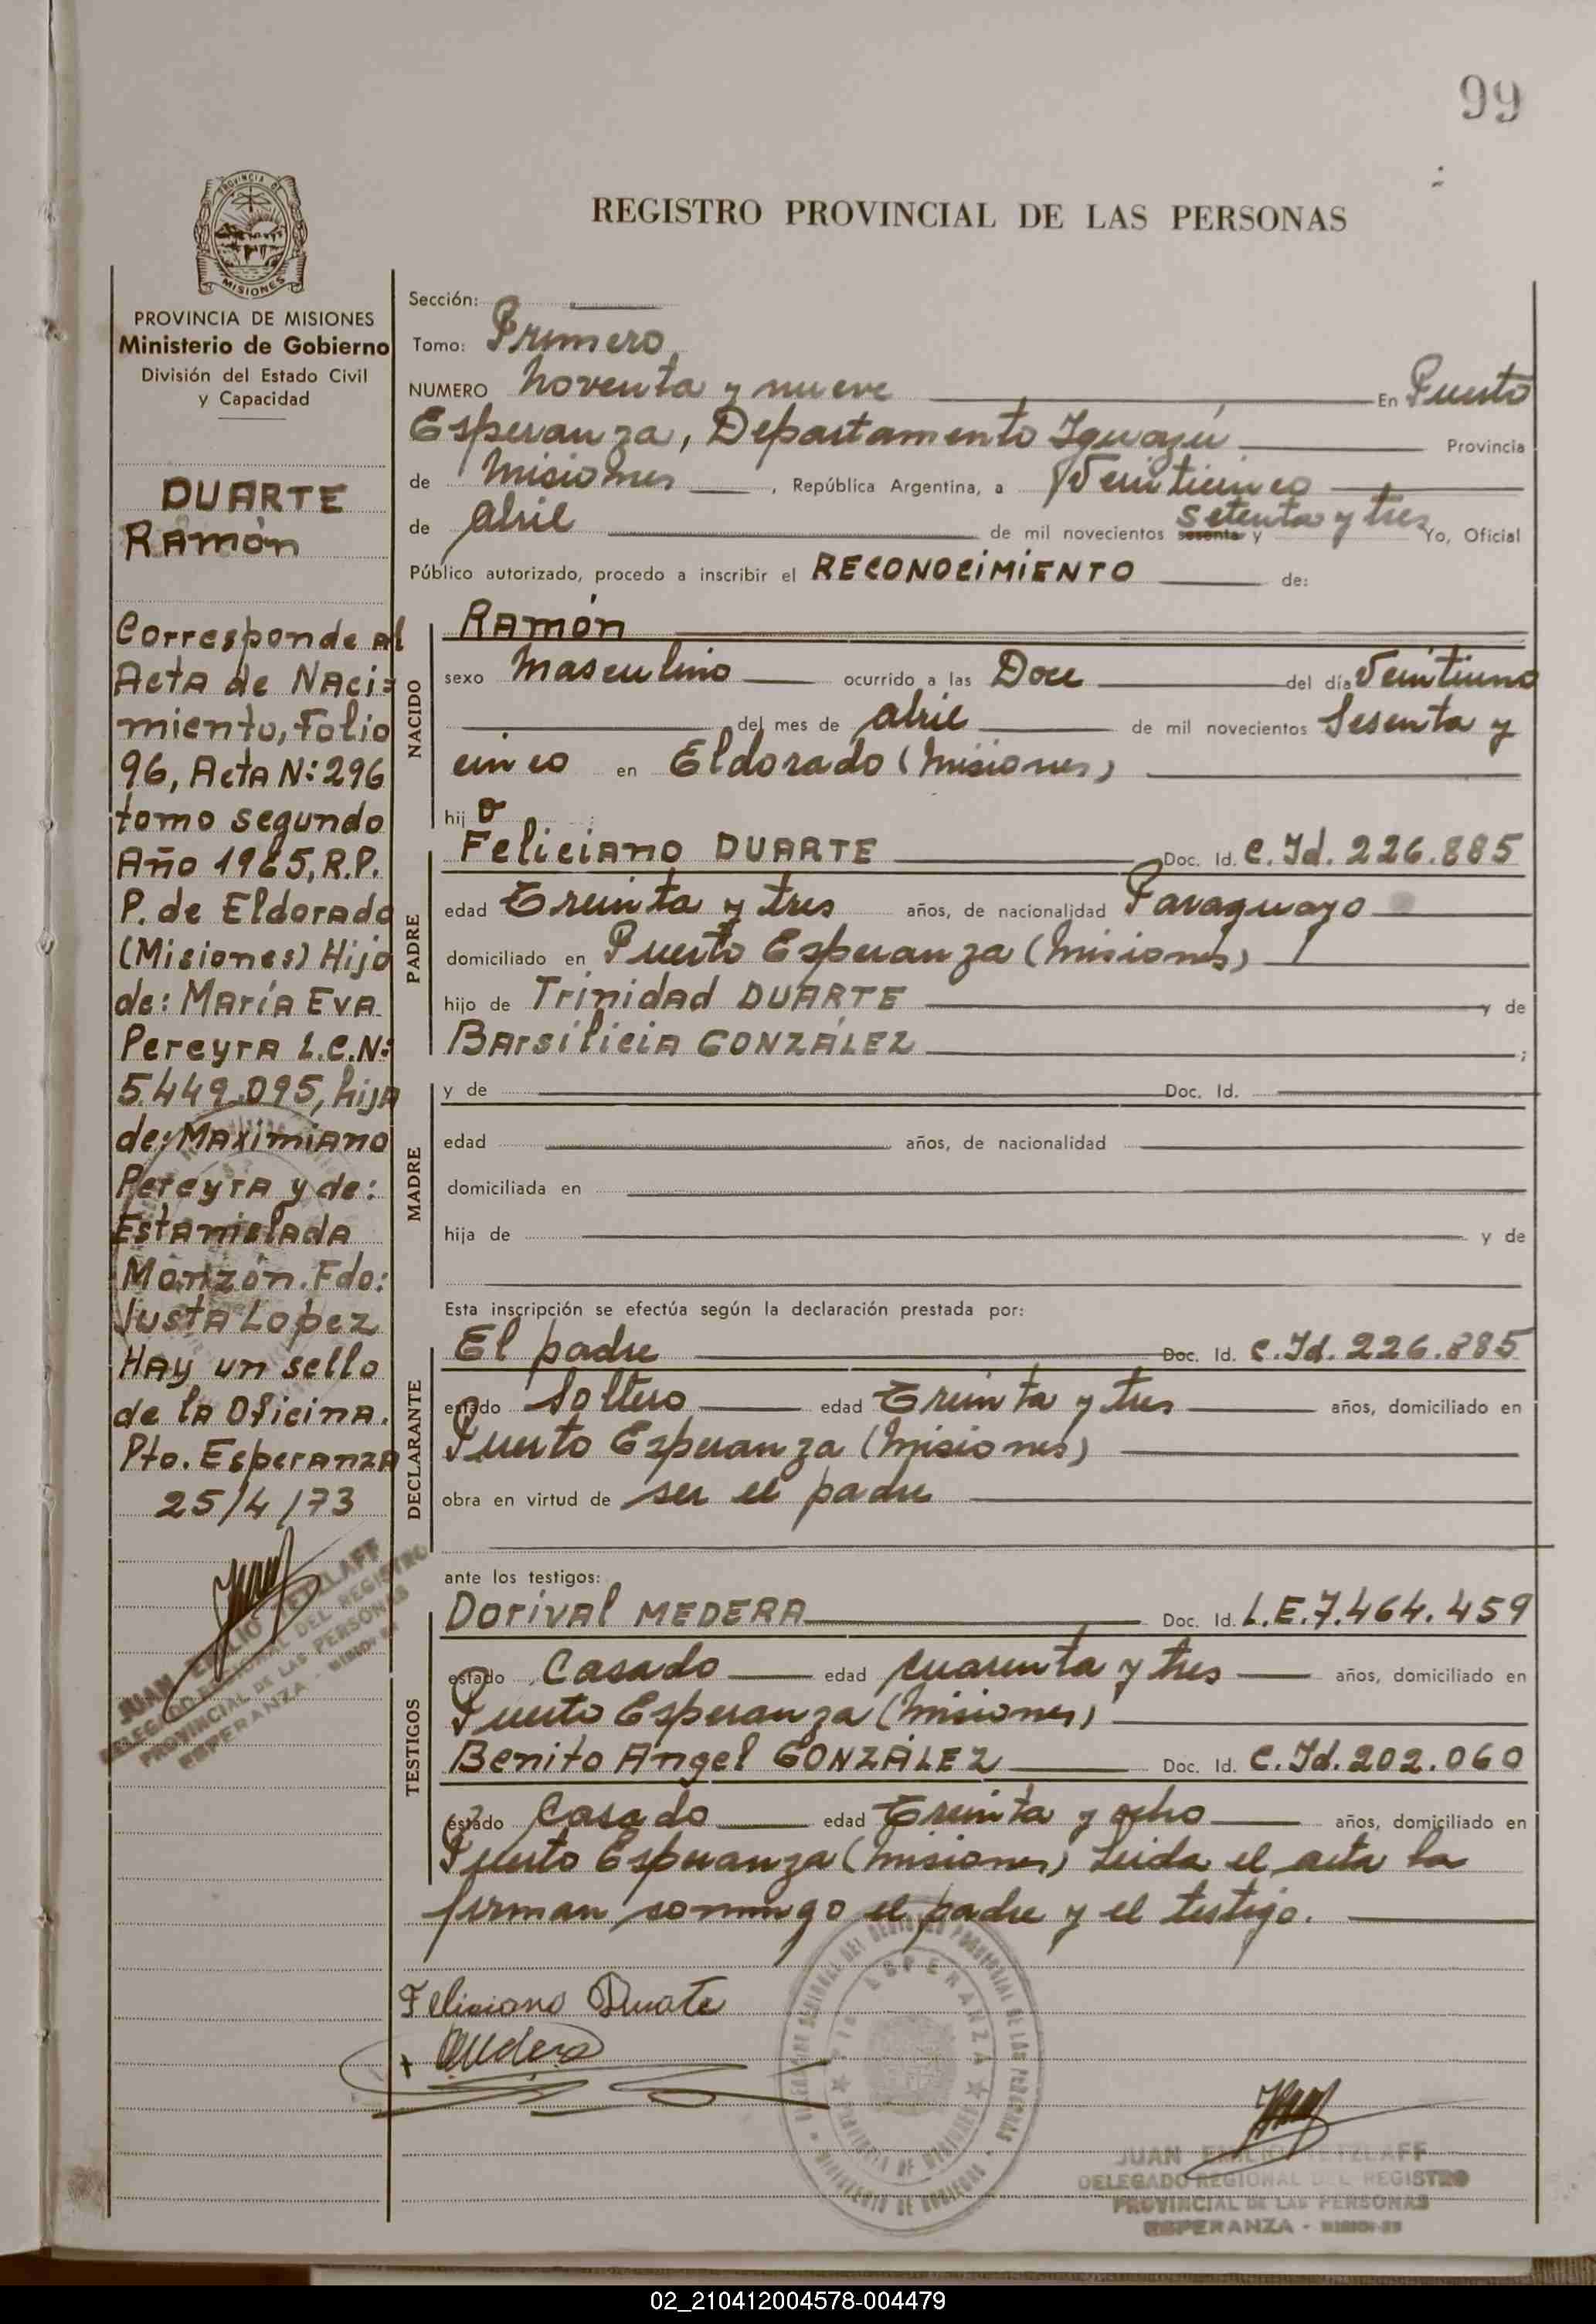 99
PROVINCIA DE
MISIONES
REGISTRO PROVINCIAL DE LAS PERSONAS
PROVINCIA DE MISIONES
Ministerio de Gobierno
División del Estado Civil
y Capacidad
DUARTE
Ramón
Corresponde al
Acta de Naci=
miento, Folio
96, Acta N: 296
tomo segundo
Año 1965, R.P.
P. de Eldorado
(Misiones) Hijo
de: María Eva
Pereyra L.C.N:
5.449.095, hija
de: Maximiano
Pereyra y de:
Estanislada
Monzón. Fdo:
Justa Lopez
Hay un sello
de la Oficina.
Pto. Esperanza
25/4/73
JUAN EMILIO TETZLAFF
DELEGADO REGIONAL DEL REGISTRO
PROVINCIAL DE LAS PERSONAS
ESPERANZA - MISIONES
Sección:
Tomo: Primero
NUMERO Noventa y nueve En Puerto
Esperanza, Departamento Iguazú Provincia
de Misiones, República Argentina, a Veinticinco
de abril de mil novecientos sesenta y setenta y tres Yo, Oficial
Público autorizado, procedo a inscribir el RECONOCIMIENTO de:
NACIDO
Ramón
sexo Masculino ocurrido a las Doce del día Veintiuno
del mes de abril de mil novecientos Sesenta y
cinco en Eldorado (Misiones)
hijo
PADRE
Feliciano DUARTE Doc. Id. C. Id. 226.885
edad Treinta y tres años, de nacionalidad Paraguayo
domiciliado en Puerto Esperanza (Misiones)
hijo de Trinidad DUARTE y de
Barsilicia GONZÁLEZ ;
MADRE
y de Doc. Id.
edad años, de nacionalidad
domiciliada en
hija de y de
Esta inscripción se efectúa según la declaración prestada por:
DECLARANTE
El padre Doc. Id. C. Id. 226.885
estado Soltero edad Treinta y tres años, domiciliado en
Puerto Esperanza (Misiones)
obra en virtud de ser el padre
ante los testigos:
TESTIGOS
Dorival MEDERA Doc. Id. L.E. 7.464.459
estado Casado edad cuarenta y tres años, domiciliado en
Puerto Esperanza (Misiones)
Benito Angel GONZÁLEZ Doc. Id. C. Id. 202.060
estado Casado edad Treinta y ocho años, domiciliado en
Puerto Esperanza (Misiones) Leida el acta la
firman conmigo el padre y el testigo.
Feliciano Duarte
Medera
ESPERANZA
JUAN EMILIO TETZLAFF
DELEGADO REGIONAL DEL REGISTRO
PROVINCIAL DE LAS PERSONAS
ESPERANZA - MISIONES
02_210412004578-004479